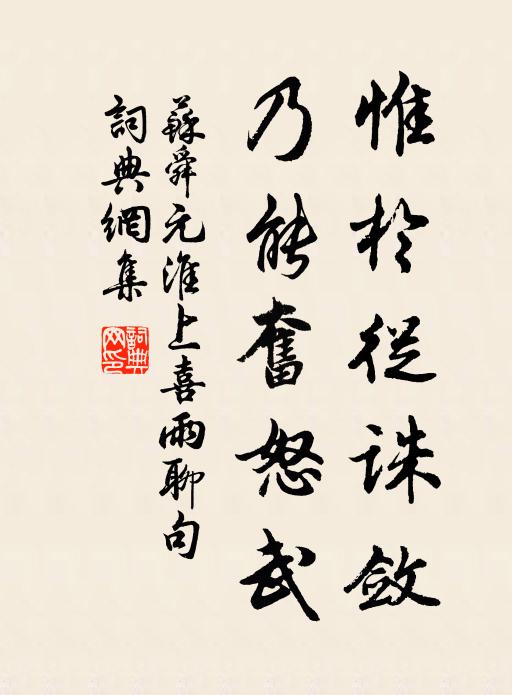 惟於從誅斂
乃能奮怒武
蘇舜元淮上喜雨聊句
詞典網集
詞典網印